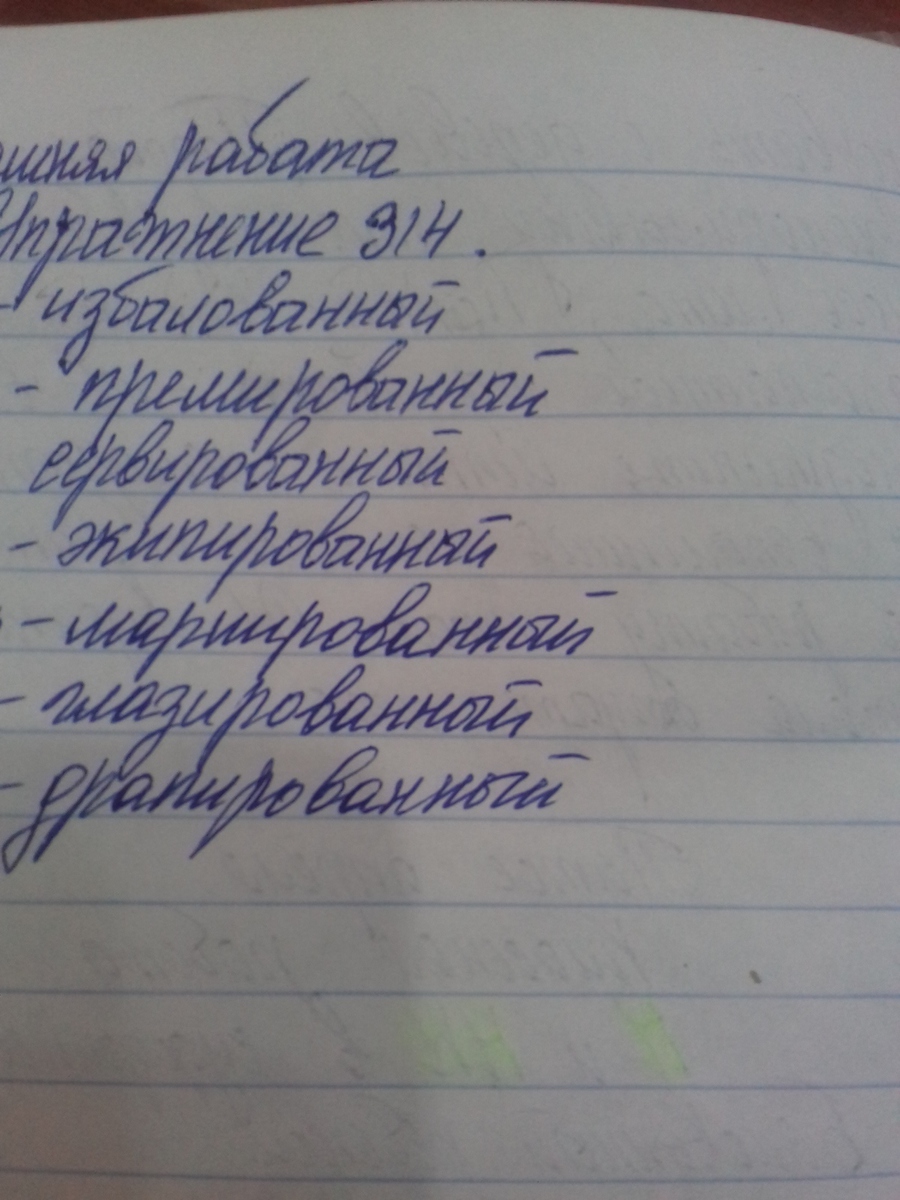 ашняя работа
Упражнение 314.
- избалованный
- премированный
сервированный
- экипированный
- маршированный
- глазированный
- драпированный